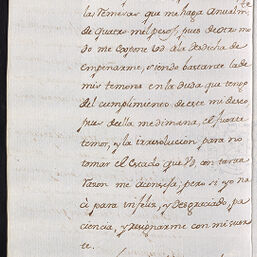 las Temesas que me haga anualm.te
de quatro mil pesos, pues de otro mo
do me expone Vd a la desdicha de
empeñarme, siendo bastante la de
mis temores en la duda que tengo
del cumplimiento de este mi deseo,
pues de ella me dimana, el fuerte
temor, y la irresolucion para no
tomar el Estado que Vd con tanta
razon me aconseja; pero si yo na
ci para infeliz, y desgraciado pa
ciencia, y resignarme con mi suer
te.